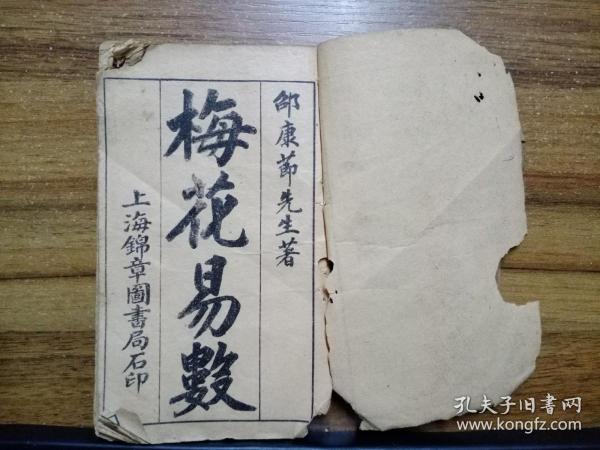 邵康節先生著
梅花易數
上海錦章圖書局石印
孔夫子旧書网
www.kongfz.com